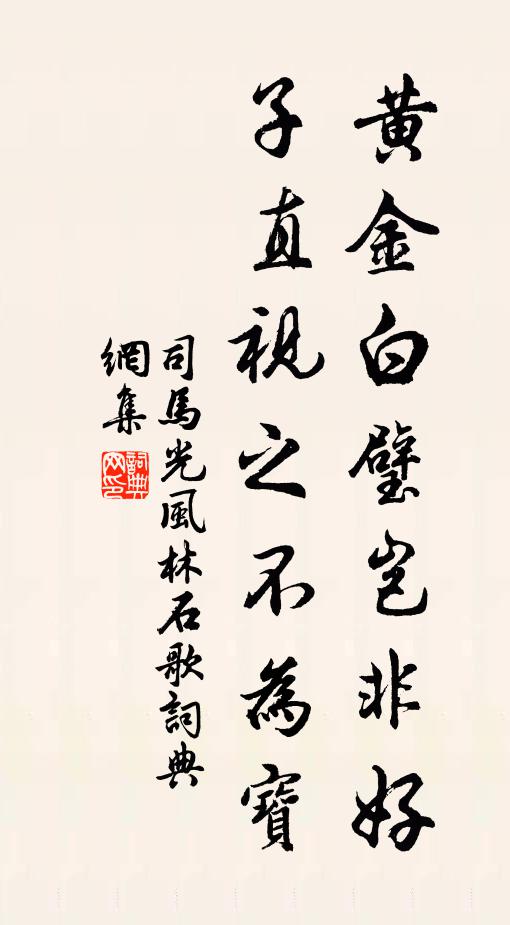 黃金白璧豈非好
子直視之不為寶
司馬光風林石歌詞典
網集
詞典
网印